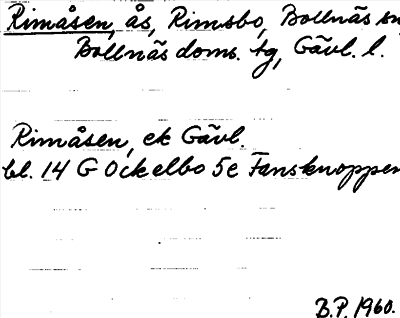 Rimåsen, ås, Rimsbo, Bollnäs sn,
Bollnäs doms. tg, Gävl. l.
Rimåsen, ek Gävl.
bl. 14 G Ockelbo 5e Fansknoppen
B.P. 1960.